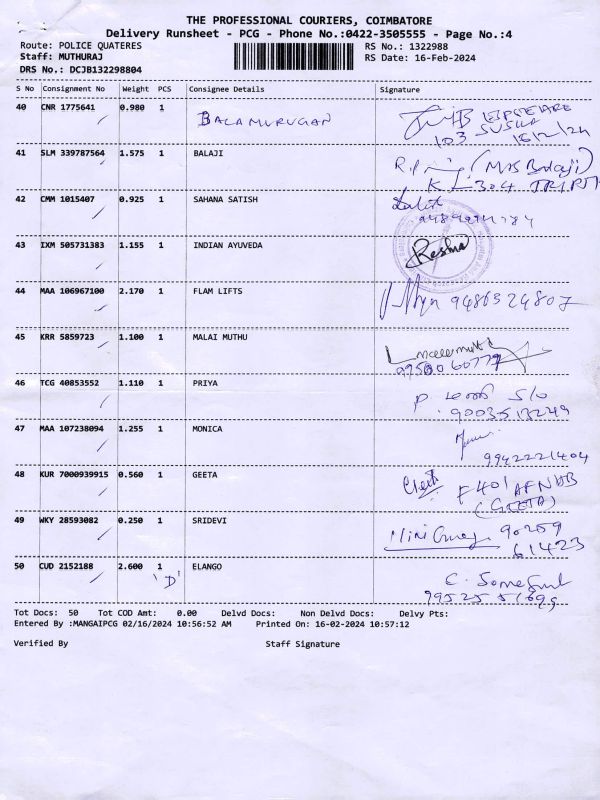 THE PROFESSIONAL COURIERS, COIMBATORE
Delivery Runsheet - PCG - Phone No.:0422-3505555 - Page No.:4
Route: POLICE QUATERES
Staff: MUTHURAJ
RS No.: 1322988
DRS No.: DCJB132298804
RS Date: 16-Feb-2024
S No Consignment No Weight PCS Consignee Details Signature
40 CNR 1775641 0.980 1 BALAMURUGAN
103
16/2/24
41 SLM 339787564 1.575 1 BALAJI
(M/S Balaji)
304
42 CMM 1015407 0.925 1 SAHANA SATISH
Lalit
43 IXM 505731383 1.155 1 INDIAN AYUVEDA
Resma
44 MAA 106967100 2.170 1 FLAM LIFTS
9486524807
45 KRR 5859723 1.100 1 MALAI MUTHU
46 TCG 40853552 1.110 1 PRIYA
S/o
9003513249
47 MAA 107238094 1.255 1 MONICA
9942221404
48 KUR 7000939915 0.560 1 GEETA
F401
(GEETA)
49 WKY 28593082 0.250 1 SRIDEVI
90259
61423
50 CUD 2152188 2.600 1 ELANGO
'D'
Tot Docs: 50 Tot COD Amt: 0.00 Delvd Docs: Non Delvd Docs: Delvy Pts:
Entered By :MANGAIPCG 02/16/2024 10:56:52 AM Printed On: 16-02-2024 10:57:12
Verified By Staff Signature